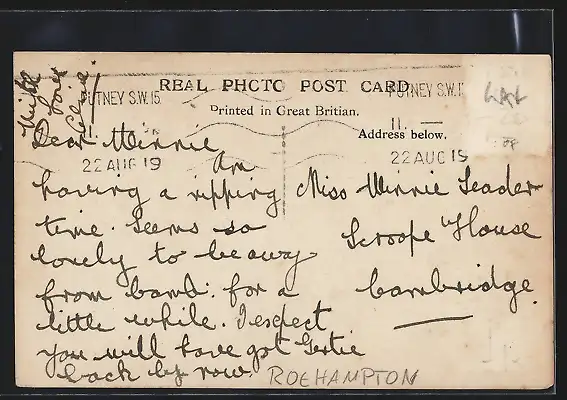 With
love
Elsie.
REAL PHOTO POST CARD
PUTNEY S.W.15
PUTNEY S.W.1
Printed in Great Britian.
11. —
Address below.
22 AUG 19
22 AUG 19
Dear Winnie,
Am
having a ripping
time. Seems so
lovely to be away
from Camb: for a
little while. I expect
you will have got Gertie
back by now.
Miss Winnie Leader
Scroope House
Cambridge.
ROEHAMPTON